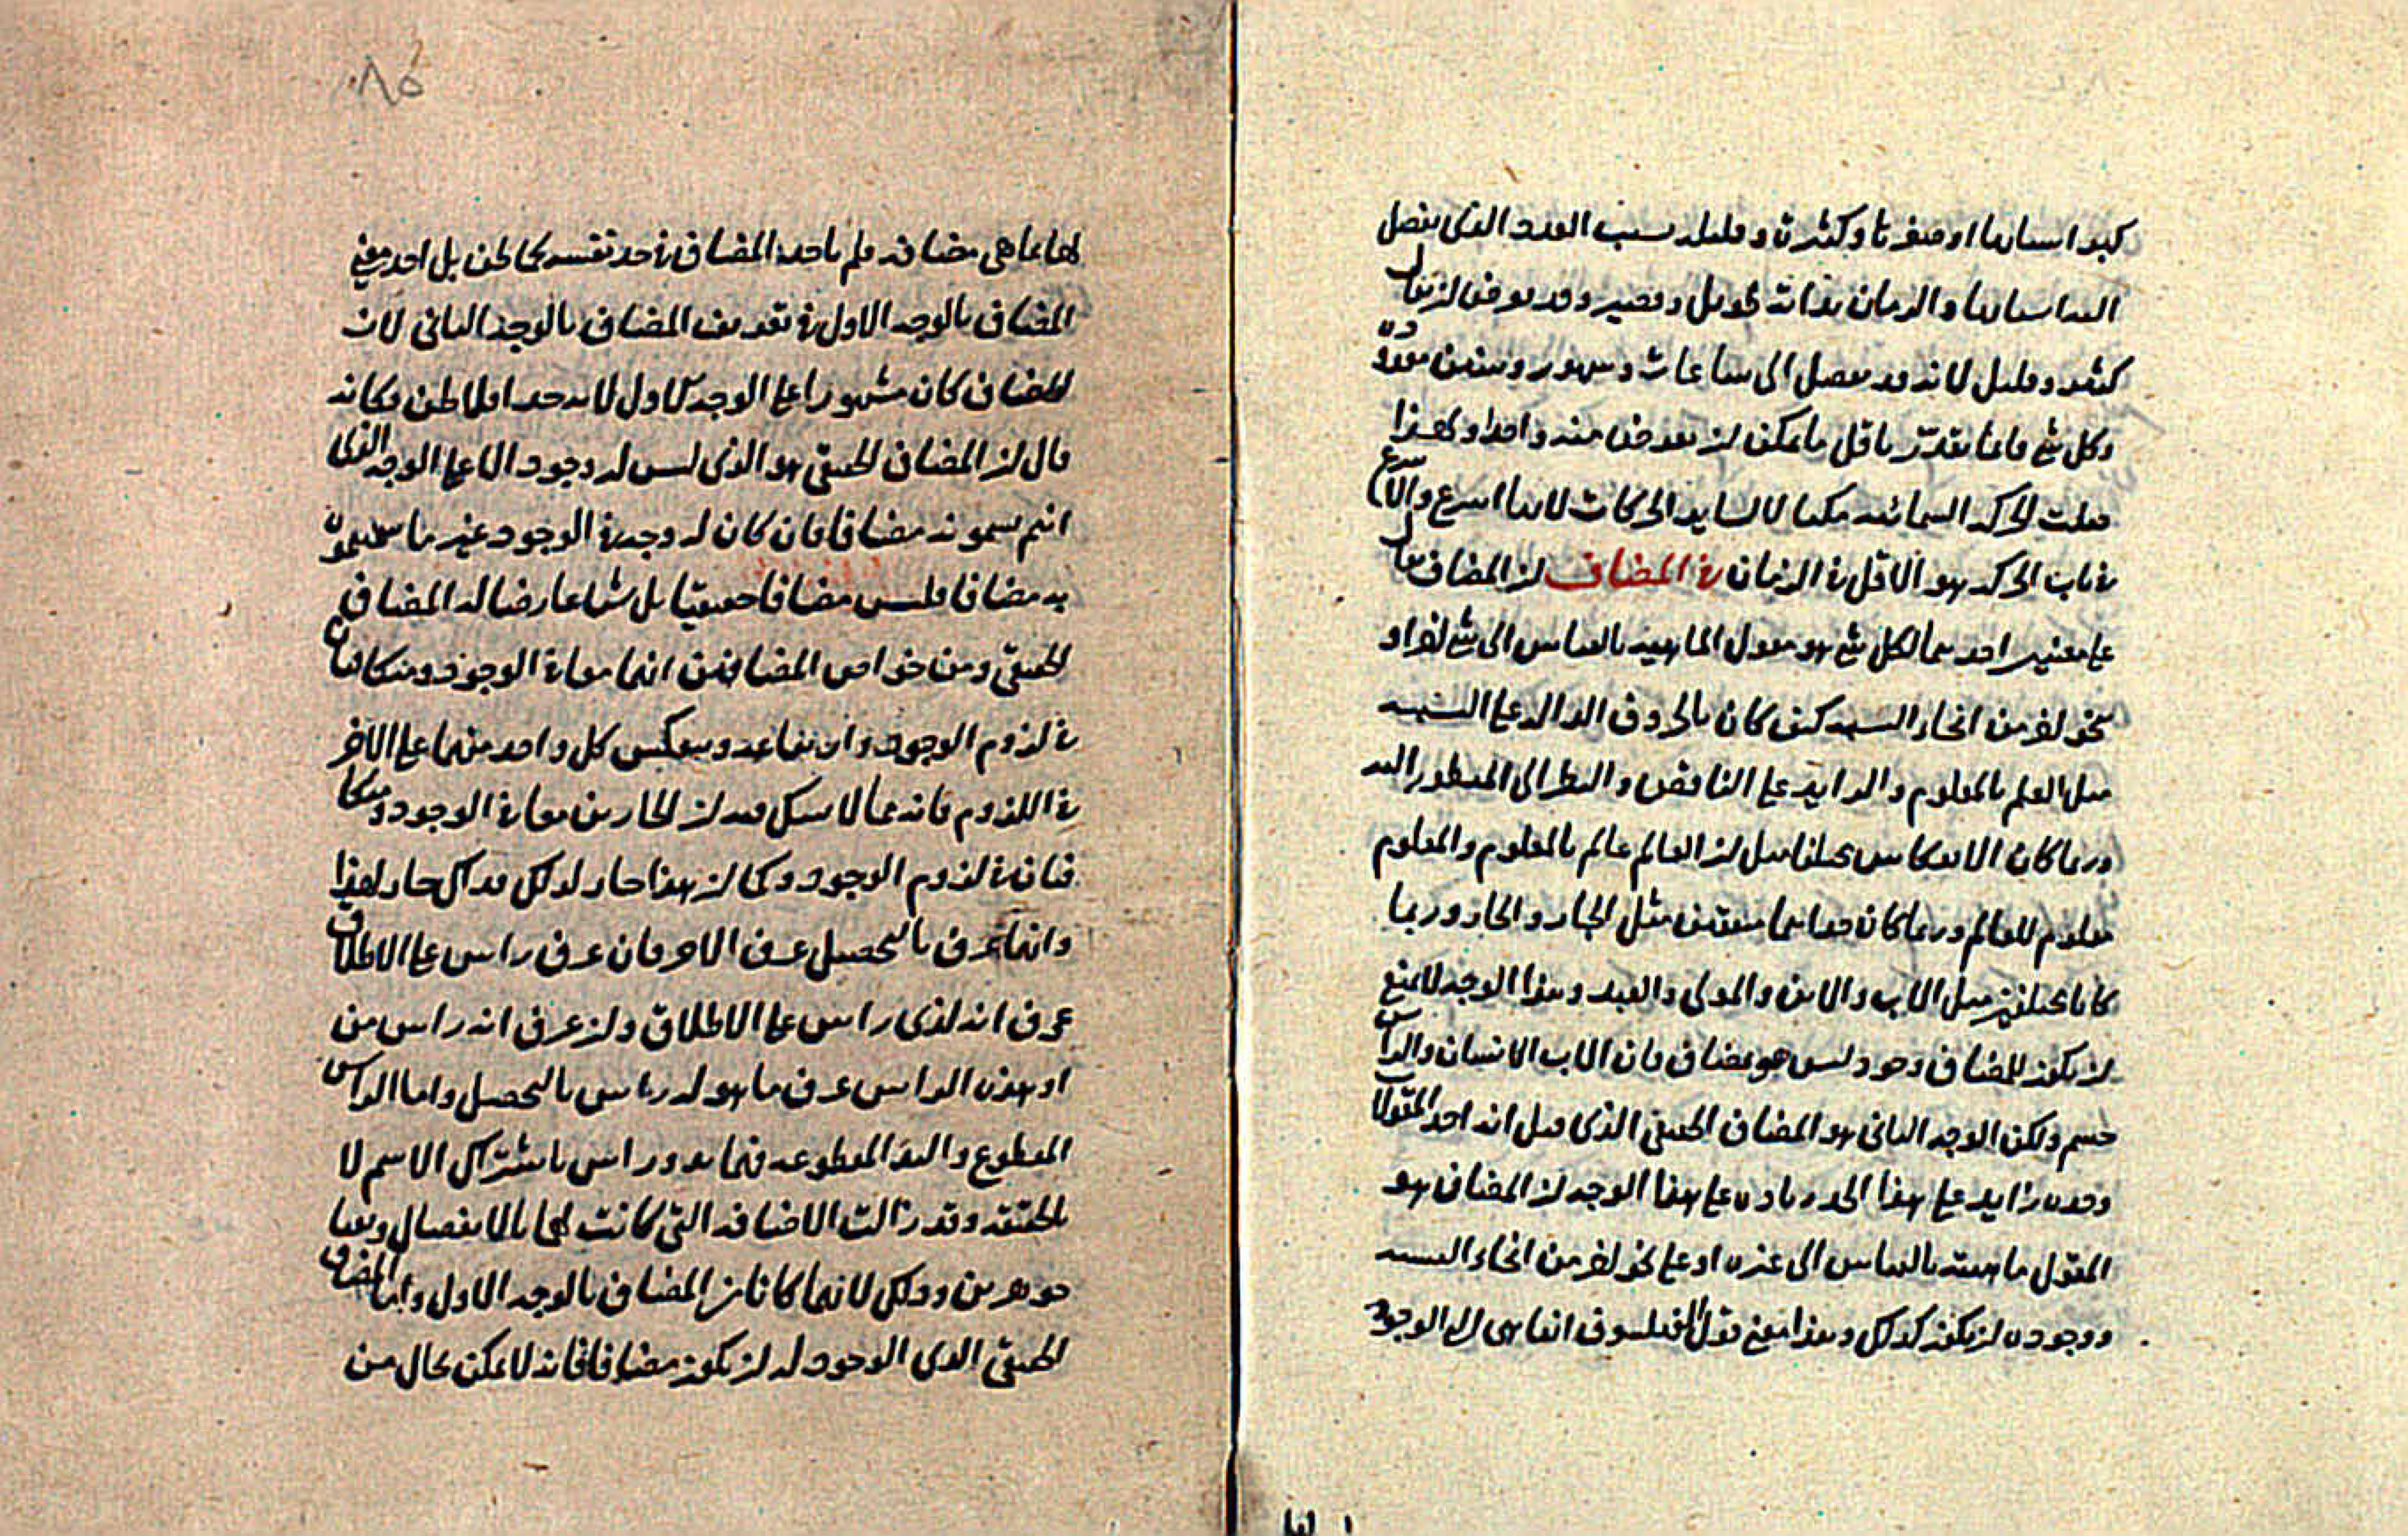 كبيرا بسيارها او صغيرتا وكثيرة وقليلة بسبب العدد الذي يفصل
والزمان بذاته طويل وقصير وقد يعرض ان يقال
كثير وقليل لانه قد يفصل الى ساعات وشهور وسنين معدودة
وكل شئ فانما يقدر باقل ما يمكن ان يفرض منه واحدا ولهذا
جعلت الحركة السمائية مكيالا لسايرا الحركات لانها اسرع والاسرع
في باب الحركة هو الاقل في الزمان في المضاف ان المضاف يقال
على معنيين احدهما لكل شئ هو مقول الماهية بالقياس الى شئ اخر او
نحو اخر من انحاء النسبة كيف كان بالحروف الدالة على النسبة
مثل العلم بالمعلوم والزايد على الناقص والنظر الى المنظور اليه
وربما كان الانعكاس مختلفا مثل ان العالم عالم بالمعلوم والمعلوم
معلوم للعالم وربما كان متفقين مثل الجار والجار وربما
كانا مختلفين مثل الاب والابن والمولى والعبد وهذا الوجه لا يمنع
ان يكون للمضاف وجود ليس هو بمضاف فان الاب الانسان والراس
جسم ولكن الوجه الثاني هو المضاف الحقيقي الذي قيل انه احد المقولات
وحده زايد على هذا الحد زيادة على هذا الوجه ان المضاف هو
المقول ماهيته بالقياس الى غيره او على نحو اخر من انحاء النسبة
ووجوده ان يكون كذلك وهذا معنى قول الفيلسوف انها هي الوجود
لها بما هي مضافة فلم ياخذ المضاف في حد نفسه كما ظن بل احد معنى
المضاف بالوجه الاول في تعريف المضاف بالوجه الثاني لان
المضاف كان مشهورا على الوجه الاول لانه حد اولا ظن وكانه
قال ان المضاف الحقيقي هو الذي ليس له وجود الا على الوجه الذي
انتم تسمونه مضافا فان كان له وجه في الوجود غير ما تجعلونه
به مضافا فليس مضافا حقيقيا بل شيا عارضا له المضاف
الحقيقي ومن خواص المضافين انهما معا في الوجود ومتكافيان
في لزوم الوجود وارتفاعه وينعكس كل واحد منهما على الاخر
في اللزوم فانه مما لا يشكل فيه ان الجارين معا في الوجود ومتكا
فيان في لزوم الوجود وكما ان هذا جار لذلك فذاك جار لهذا
وايهما عرف بالتحصيل عرف الاخر فان عرف راس على الاطلاق
عرف انه لذي راس على الاطلاق وان عرف انه راس من
او هذه الراس عرف ما هو له راس بالتحصيل واما الراس
المقطوع واليد المقطوعة فهما يد وراس باشتراك الاسم لا
بالحقيقة وقد زالت الاضافة التي كانت لهما بالانفصال وبقيا
جوهرين وذلك لانهما كانا من المضاف بالوجه الاول واما المضاف
الحقيقي الذي الوجود له ان يكون مضافا فانه لا يمكن بحال من